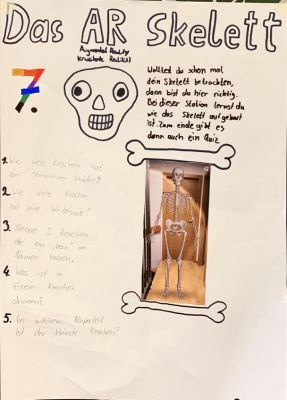 Das AR Skelett
Augmented Reality
(erweiterte Realität)
7.
Wolltest du schon mal
dein Skelett betrachten,
dann bist du hier richtig.
Bei dieser Station lernst du
wie das Skelett aufgebaut
ist. Zum ende gibt es
dann auch ein Quiz
1. Wie viele Knochen hat
ein Menschlicher Schädel?
2. Wie viele Knochen
hat eine Wirbelsäule?
3. Nenne 3 Knochen
die ein „bein" im
Namen haben.
4. Was ist in
Knochen
drinnen?
5. In welchem Körperteil
ist der kleinste Knochen?